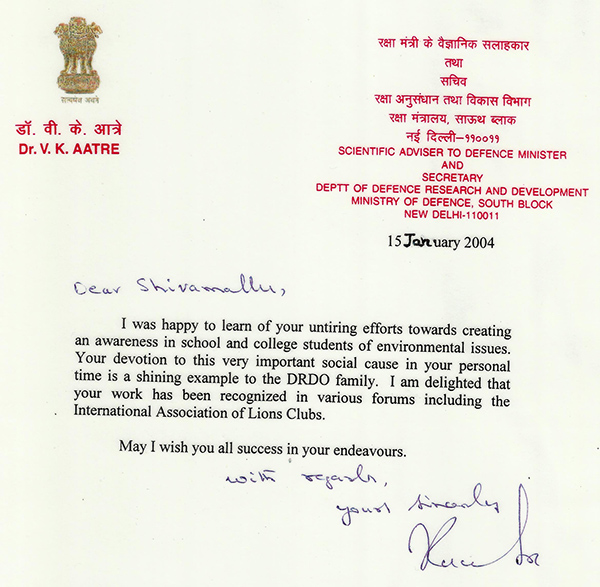 सत्यमेव जयते
डॉ. वी. के. आत्रे
Dr. V. K. AATRE
रक्षा मंत्री के वैज्ञानिक सलाहकार
तथा
सचिव
रक्षा अनुसंधान तथा विकास विभाग
रक्षा मंत्रालय, साऊथ ब्लाक
नई दिल्ली-११००११
SCIENTIFIC ADVISER TO DEFENCE MINISTER
AND
SECRETARY
DEPTT OF DEFENCE RESEARCH AND DEVELOPMENT
MINISTRY OF DEFENCE, SOUTH BLOCK
NEW DELHI-110011
15 January 2004
Dear Shivamallu,
I was happy to learn of your untiring efforts towards creating
an awareness in school and college students of environmental issues.
Your devotion to this very important social cause in your personal
time is a shining example to the DRDO family. I am delighted that
your work has been recognized in various forums including the
International Association of Lions Clubs.
May I wish you all success in your endeavours.
with regards,
yours sincerely